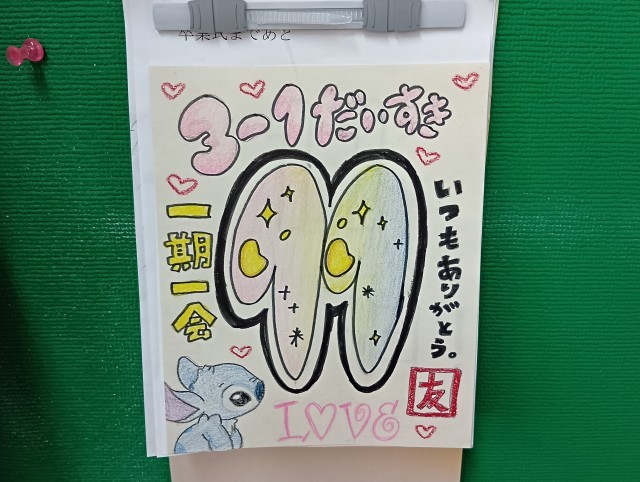 卒業式まであと
3-1だいすき
99
いつもありがとう。
一期一会
友
LOVE